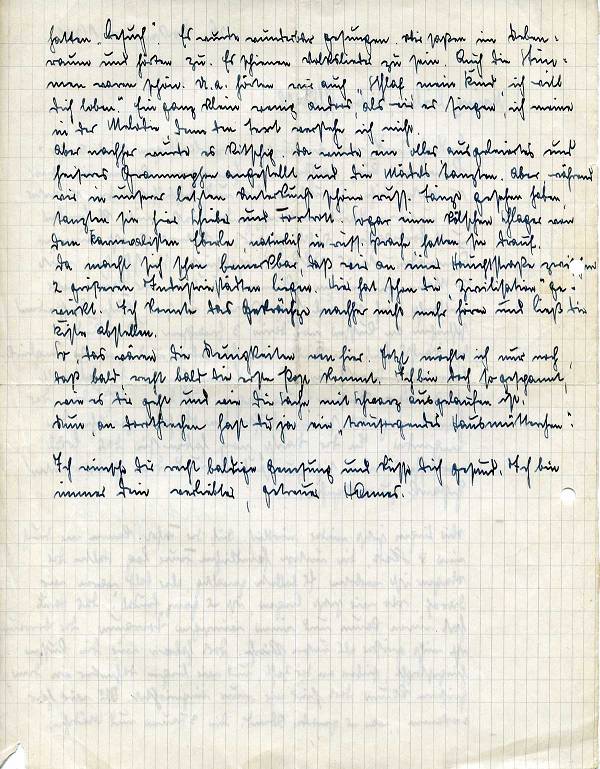 hatten „Besuch“. Es wurde wunderbar gesungen. Wir saßen im Neben-
raum und hörten zu. Es schienen Volkslieder zu sein. Auch die Stim-
men waren schön. U.a. hörten wir auch „Schlaf mein Kind, ich will
Dich loben“. Ein ganz klein wenig anders, als wir es singen, ich meine
in der Melodie, denn den Text verstehe ich nicht.
Aber nachher wurde es kitschig. Da wurde ein altes ausgeleiertes und
heiseres Grammophon angestellt und die Mädels tanzten. Aber während
wir in unserer letzten Unterkunft schöne russ. Tänze gesehen haben,
tanzten sie hier Schieber und Foxtrott. Sogar einen Kölschen Schlager von
dem Karnevalisten Eberle, natürlich in russ. Sprache hatten sie drauf.
Da macht sich schon bemerkbar, daß wir an einer Hauptstraße zwischen
2 größeren Industriestädten liegen. Hier hat schon die „Zivilisation“ ge-
wirkt. Ich konnte das Gekrächze nachher nicht mehr hören und ließ die
Kiste abstellen.
So, das wären die Neuigkeiten von hier. Jetzt möchte ich nur noch,
daß bald, recht bald die erste Post kommt. Ich bin doch so gespannt,
wie es Dir geht und wie die Sache mit Schwarz ausgelaufen ist.
Nun, an Dorothechen hast Du ja ein „treusorgendes Hausmütterchen“.
Ich wünsche Dir recht baldige Genesung und küsse Dich gesund. Ich bin
immer Dein verliebter, getreuer Hannes.